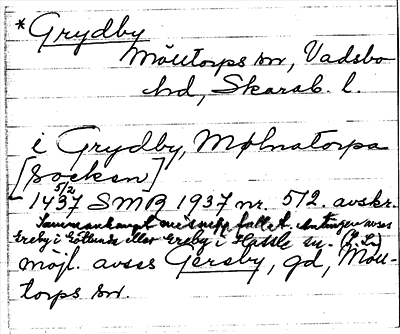 *Grydby
Mölltorps sn, Vadsbo
hd, Skarab. l.
i Grydby, Mølnatorpa
[socken]
5/2
1437 SMR 1937 nr. 512. avskr.
Sammankomst misstänkt fallet. Antingen avses
Ereby i Götlunda eller Ereby i Hassle sn. (L.L.)
möjl. avses Gersby, gd, Möll-
torps sn.